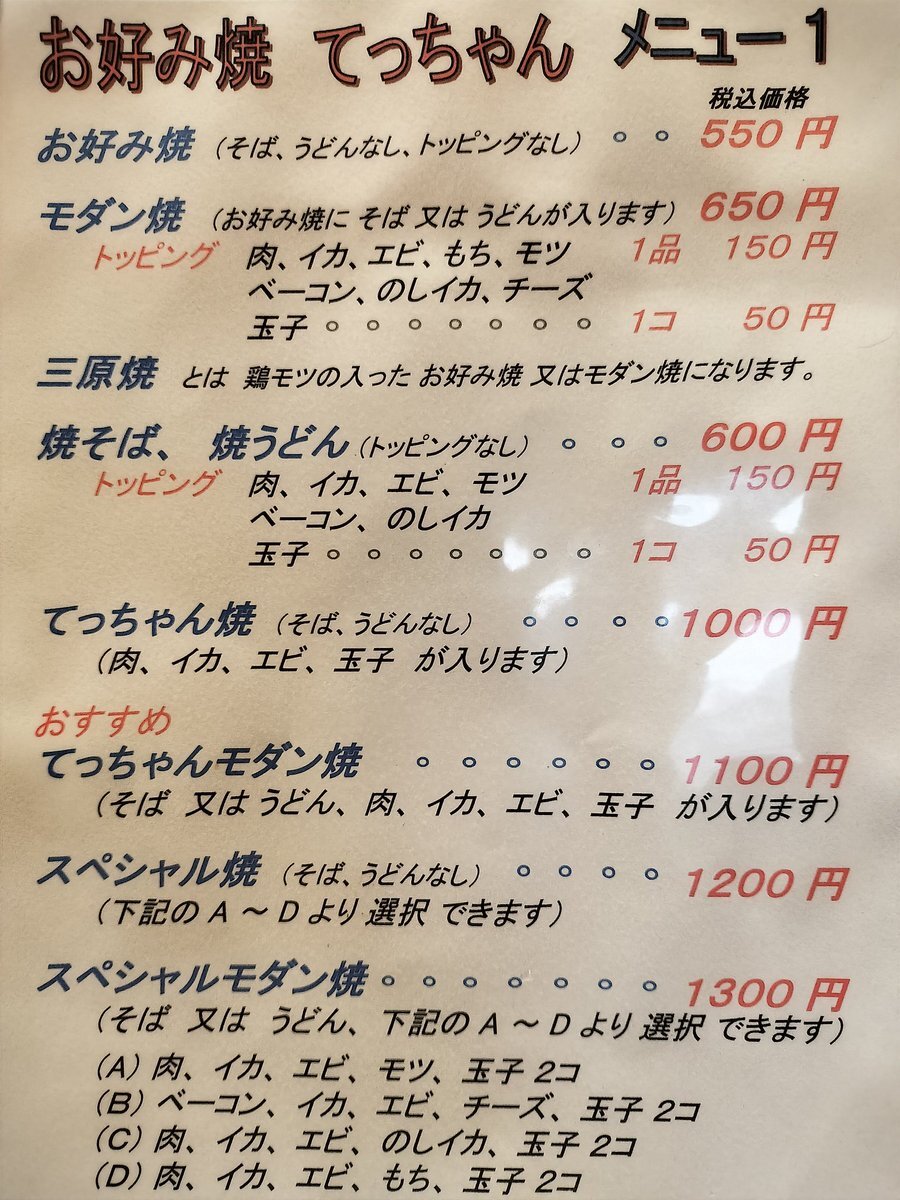 お好み焼 てっちゃん メニュー1
税込価格
お好み焼 (そば、うどんなし、トッピングなし) 。。 550円
モダン焼 (お好み焼に そば 又は うどんが入ります) 650円
トッピング 肉、イカ、エビ、もち、モツ 1品 150円
ベーコン、のしイカ、チーズ
玉子 。。。。。。。 1コ 50円
三原焼 とは 鶏モツの入った お好み焼 又はモダン焼になります。
焼そば、 焼うどん (トッピングなし) 。。。 600円
トッピング 肉、イカ、エビ、モツ 1品 150円
ベーコン、のしイカ
玉子 。。。。。。。 1コ 50円
てっちゃん焼 (そば、うどんなし) 。。。。 1000円
(肉、イカ、エビ、玉子 が入ります)
おすすめ
てっちゃんモダン焼 。。。。。。 1100円
(そば 又は うどん、肉、イカ、エビ、玉子 が入ります)
スペシャル焼 (そば、うどんなし) 。。。。 1200円
(下記の A ～ D より 選択 できます)
スペシャルモダン焼 。。。。。。。 1300円
(そば 又は うどん、下記の A ～ D より 選択 できます)
(A) 肉、イカ、エビ、モツ、玉子 2コ
(B) ベーコン、イカ、エビ、チーズ、玉子 2コ
(C) 肉、イカ、エビ、のしイカ、玉子 2コ
(D) 肉、イカ、エビ、もち、玉子 2コ